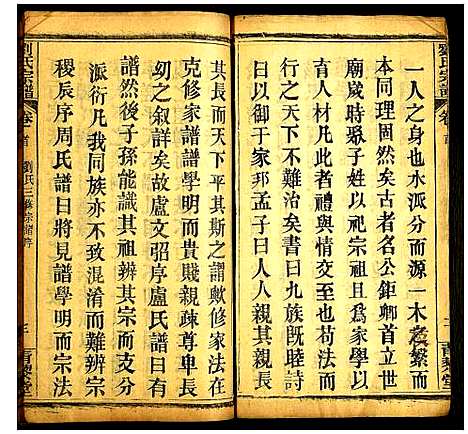 劉氏宗譜
卷首
一人之身也水派分而源一木老繁而
本同理固然矣古者名公鉅卿首立世
廟歲時聚子姓以祀宗祖且爲家學以
育人材凡此者禮與情交至也苟法而
行之天下不難治矣書曰九族既睦詩
曰以御于家邦孟子曰人人親其親長
其長而天下平其斯之謂歟修家法與
克修家譜譜學明而貴賤親疎尊卑長
幼之叙詳矣故盧文弨序盧氏譜曰有
譜然後子孫能識其祖辨其宗而支分
派衍凡我同族亦不致混淆而蘭辰宗
稷辰序周氏譜曰將見譜學明而宗法
劉氏宗譜
卷首
劉氏三修宗譜序
三
青藜堂